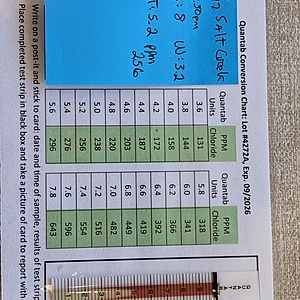 Salt Creek
: 8 W: 32
: 5.2 ppm
256
Quantab Conversion Chart: Lot #4272A, Exp. 09/2026
Quantab PPM Chloride Quantab PPM Chloride
3.6 131 5.8 318
3.8 144 6.0 341
4.0 158 6.2 366
4.2 172 6.4 392
4.4 187 6.6 419
4.6 203 6.8 449
4.8 220 7.0 482
5.0 238 7.2 516
5.2 256 7.4 554
5.4 276 7.6 596
5.6 296 7.8 643
Write on a post-it and stick to card: date and time of sample, results of test strip
Place completed test strip in black box and take a picture of card to report with
QUANTAB